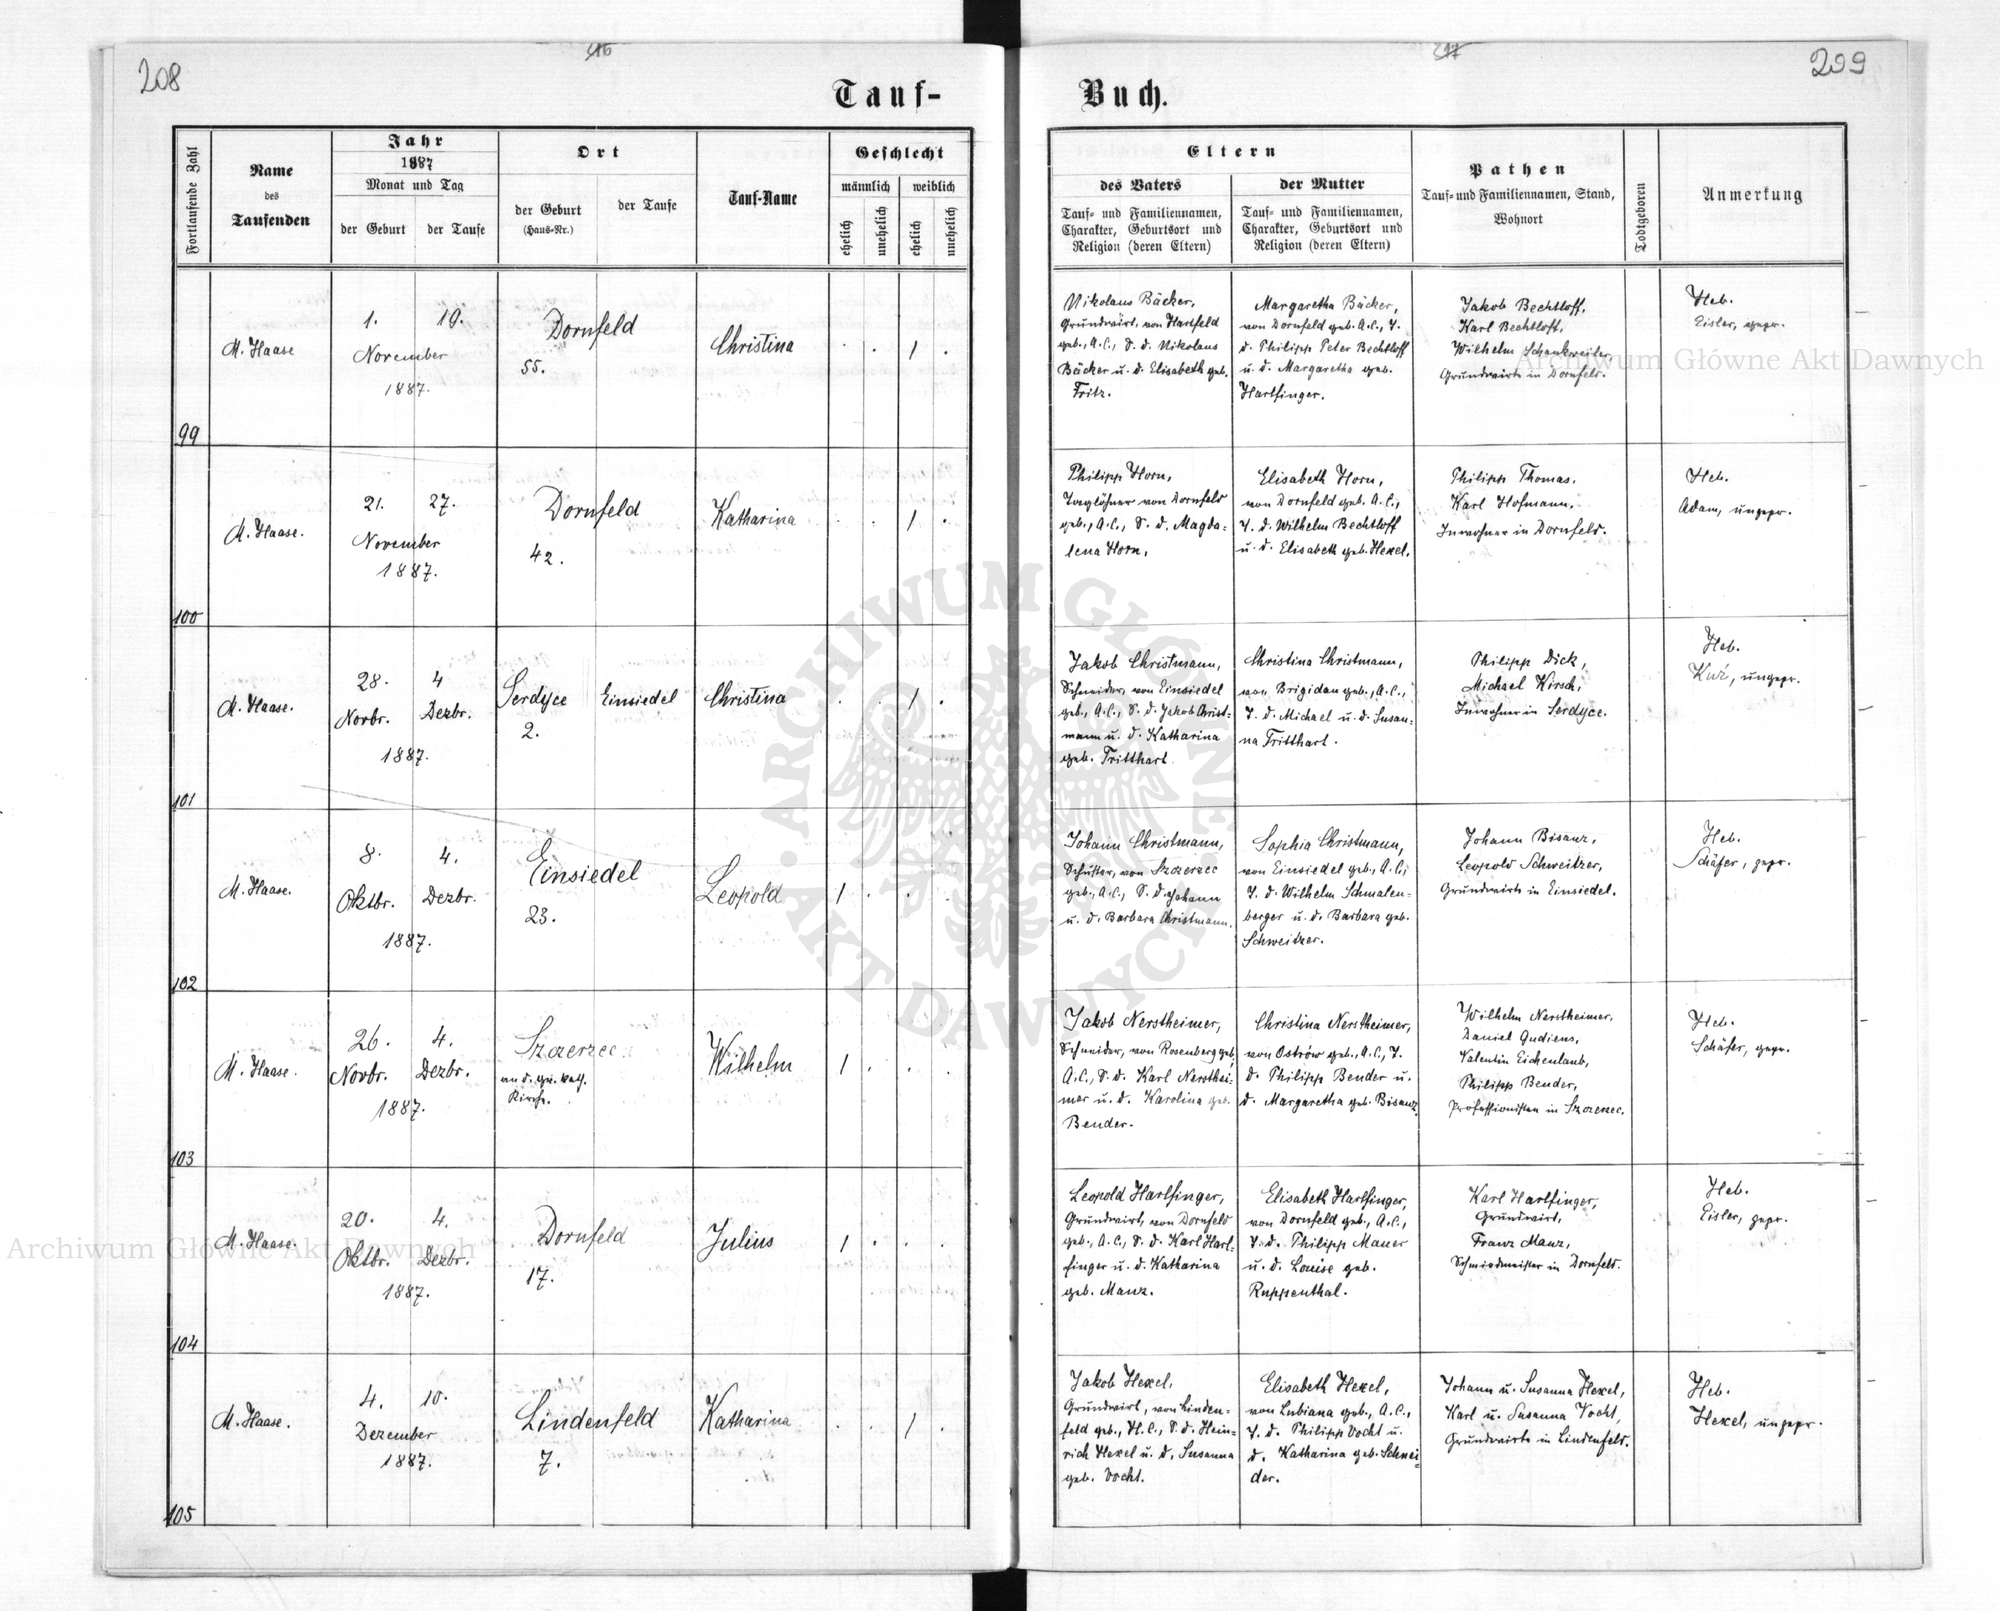 208
216
Tauf-
Fortlaufende Zahl
Name
des
Taufenden
Jahr
1887
Monat und Tag
der Geburt
der Taufe
Ort
der Geburt
(Haus-Nr.)
der Taufe
Tauf-Name
Geschlecht
männlich
weiblich
ehelich
unehelich
ehelich
unehelich
99
M. Haase
1. 19.
November
1887.
Dornfeld
55.
Christina
1
100
M. Haase.
21. 27.
November
1887.
Dornfeld
42.
Katharina
1
101
M. Haase.
28. 4
Novbr. Dezbr.
1887.
Serdyce
2.
Einsiedel
Christina
1
102
M. Haase.
8. 4.
Oktbr. Dezbr.
1887.
Einsiedel
23.
Leopold
1
103
M. Haase.
26. 4.
Novbr. Dezbr.
1887.
Szczerzec
an d. gr. kath.
Kirche.
Wilhelm
1
104
M. Haase.
20. 4.
Oktbr. Dezbr.
1887.
Dornfeld
17.
Julius
1
105
M. Haase.
4. 10.
Dezember
1887.
Lindenfeld
7.
Katharina
1
217
209
Buch.
Eltern
des Vaters
Tauf- und Familiennamen,
Charakter, Geburtsort und
Religion (deren Eltern)
der Mutter
Tauf- und Familiennamen,
Charakter, Geburtsort und
Religion (deren Eltern)
Pathen
Tauf- und Familiennamen, Stand,
Wohnort
Todtgeboren
Anmerkung
Nikolaus Bäcker,
Grundwirt, von Hartfeld
geb., A.C., S. d. Nikolaus
Bäcker u. d. Elisabeth geb.
Fritz.
Margaretha Bäcker,
von Dornfeld geb. A.C., T.
d. Philipp Peter Bechtloff
u. d. Margaretha geb.
Harlfinger.
Jakob Bechtloff,
Karl Bechtloff,
Wilhelm Schankweiler,
Grundwirte in Dornfeld.
Heb.
Eisler, gepr.
Philipp Horn,
Taglöhner von Dornfeld
geb., A.C., S. d. Magda-
lena Horn,
Elisabeth Horn,
von Dornfeld geb. A.C.,
T. d. Wilhelm Bechtloff
u. d. Elisabeth geb. Hexel.
Philipp Thomas,
Karl Hofmann,
Inwohner in Dornfeld.
Heb.
Adam, ungepr.
Jakob Christmann,
Schneider, von Einsiedel
geb., A.C., S. d. Jakob Christ-
mann u. d. Katharina
geb. Tritthart
Christina Christmann,
von Brigidau geb., A.C.,
T. d. Michael u. d. Susan-
na Tritthart.
Philipp Dick,
Michael Kirsch,
Inwohner in Serdyce.
Heb.
ungepr.
Johann Christmann,
Schuster, von Szczerzec
geb., A.C., S. d. Johann
u. d. Barbara Christmann.
Sophia Christmann,
von Einsiedel geb., A.C.,
T. d. Wilhelm Schmalen-
berger u. d. Barbara geb.
Schweitzer.
Johann Bisanz,
Leopold Schweitzer,
Grundwirte in Einsiedel.
Heb.
Schäfer, gepr.
Jakob Nerstheimer,
Schneider, von Rosenberg geb.,
A.C., S. d. Karl Nersthei-
mer u. d. Karolina geb.
Bender.
Christina Nerstheimer,
von Ostrów geb., A.C., T.
d. Philipp Bender u.
d. Margaretha geb. Bisanz.
Wilhelm Nerstheimer,
Daniel Gudiens,
Valentin Eichenlaub,
Philipp Bender,
Professionisten in Szczerzec.
Heb.
Schäfer, gepr.
Leopold Harlfinger,
Grundwirt, von Dornfeld
geb., A.C., S. d. Karl Harl-
finger u. d. Katharina
geb. Manz.
Elisabeth Harlfinger,
von Dornfeld geb., A.C.,
T. d. Philipp Mauer
u. d. Louise geb.
Ruppenthal.
Karl Harlfinger,
Grundwirt,
Franz Manz,
Schmiedmeister in Dornfeld.
Heb.
Eisler, gepr.
Jakob Hexel,
Grundwirt, von Linden-
feld geb., H.C., S. d. Hein-
rich Hexel u. d. Susanna
geb. Vocht.
Elisabeth Hexel,
von Lubiana geb., A.C.,
T. d. Philipp Vocht u.
d. Katharina geb. Schnei-
der.
Johann u. Susanna Hexel,
Karl u. Susanna Vocht,
Grundwirte in Lindenfeld.
Heb.
Hexel, ungepr.
Archiwum Główne Akt Dawnych
Archiwum Główne Akt Dawnych
ARCHIWUM GŁÓWNE
AKT DAWNYCH